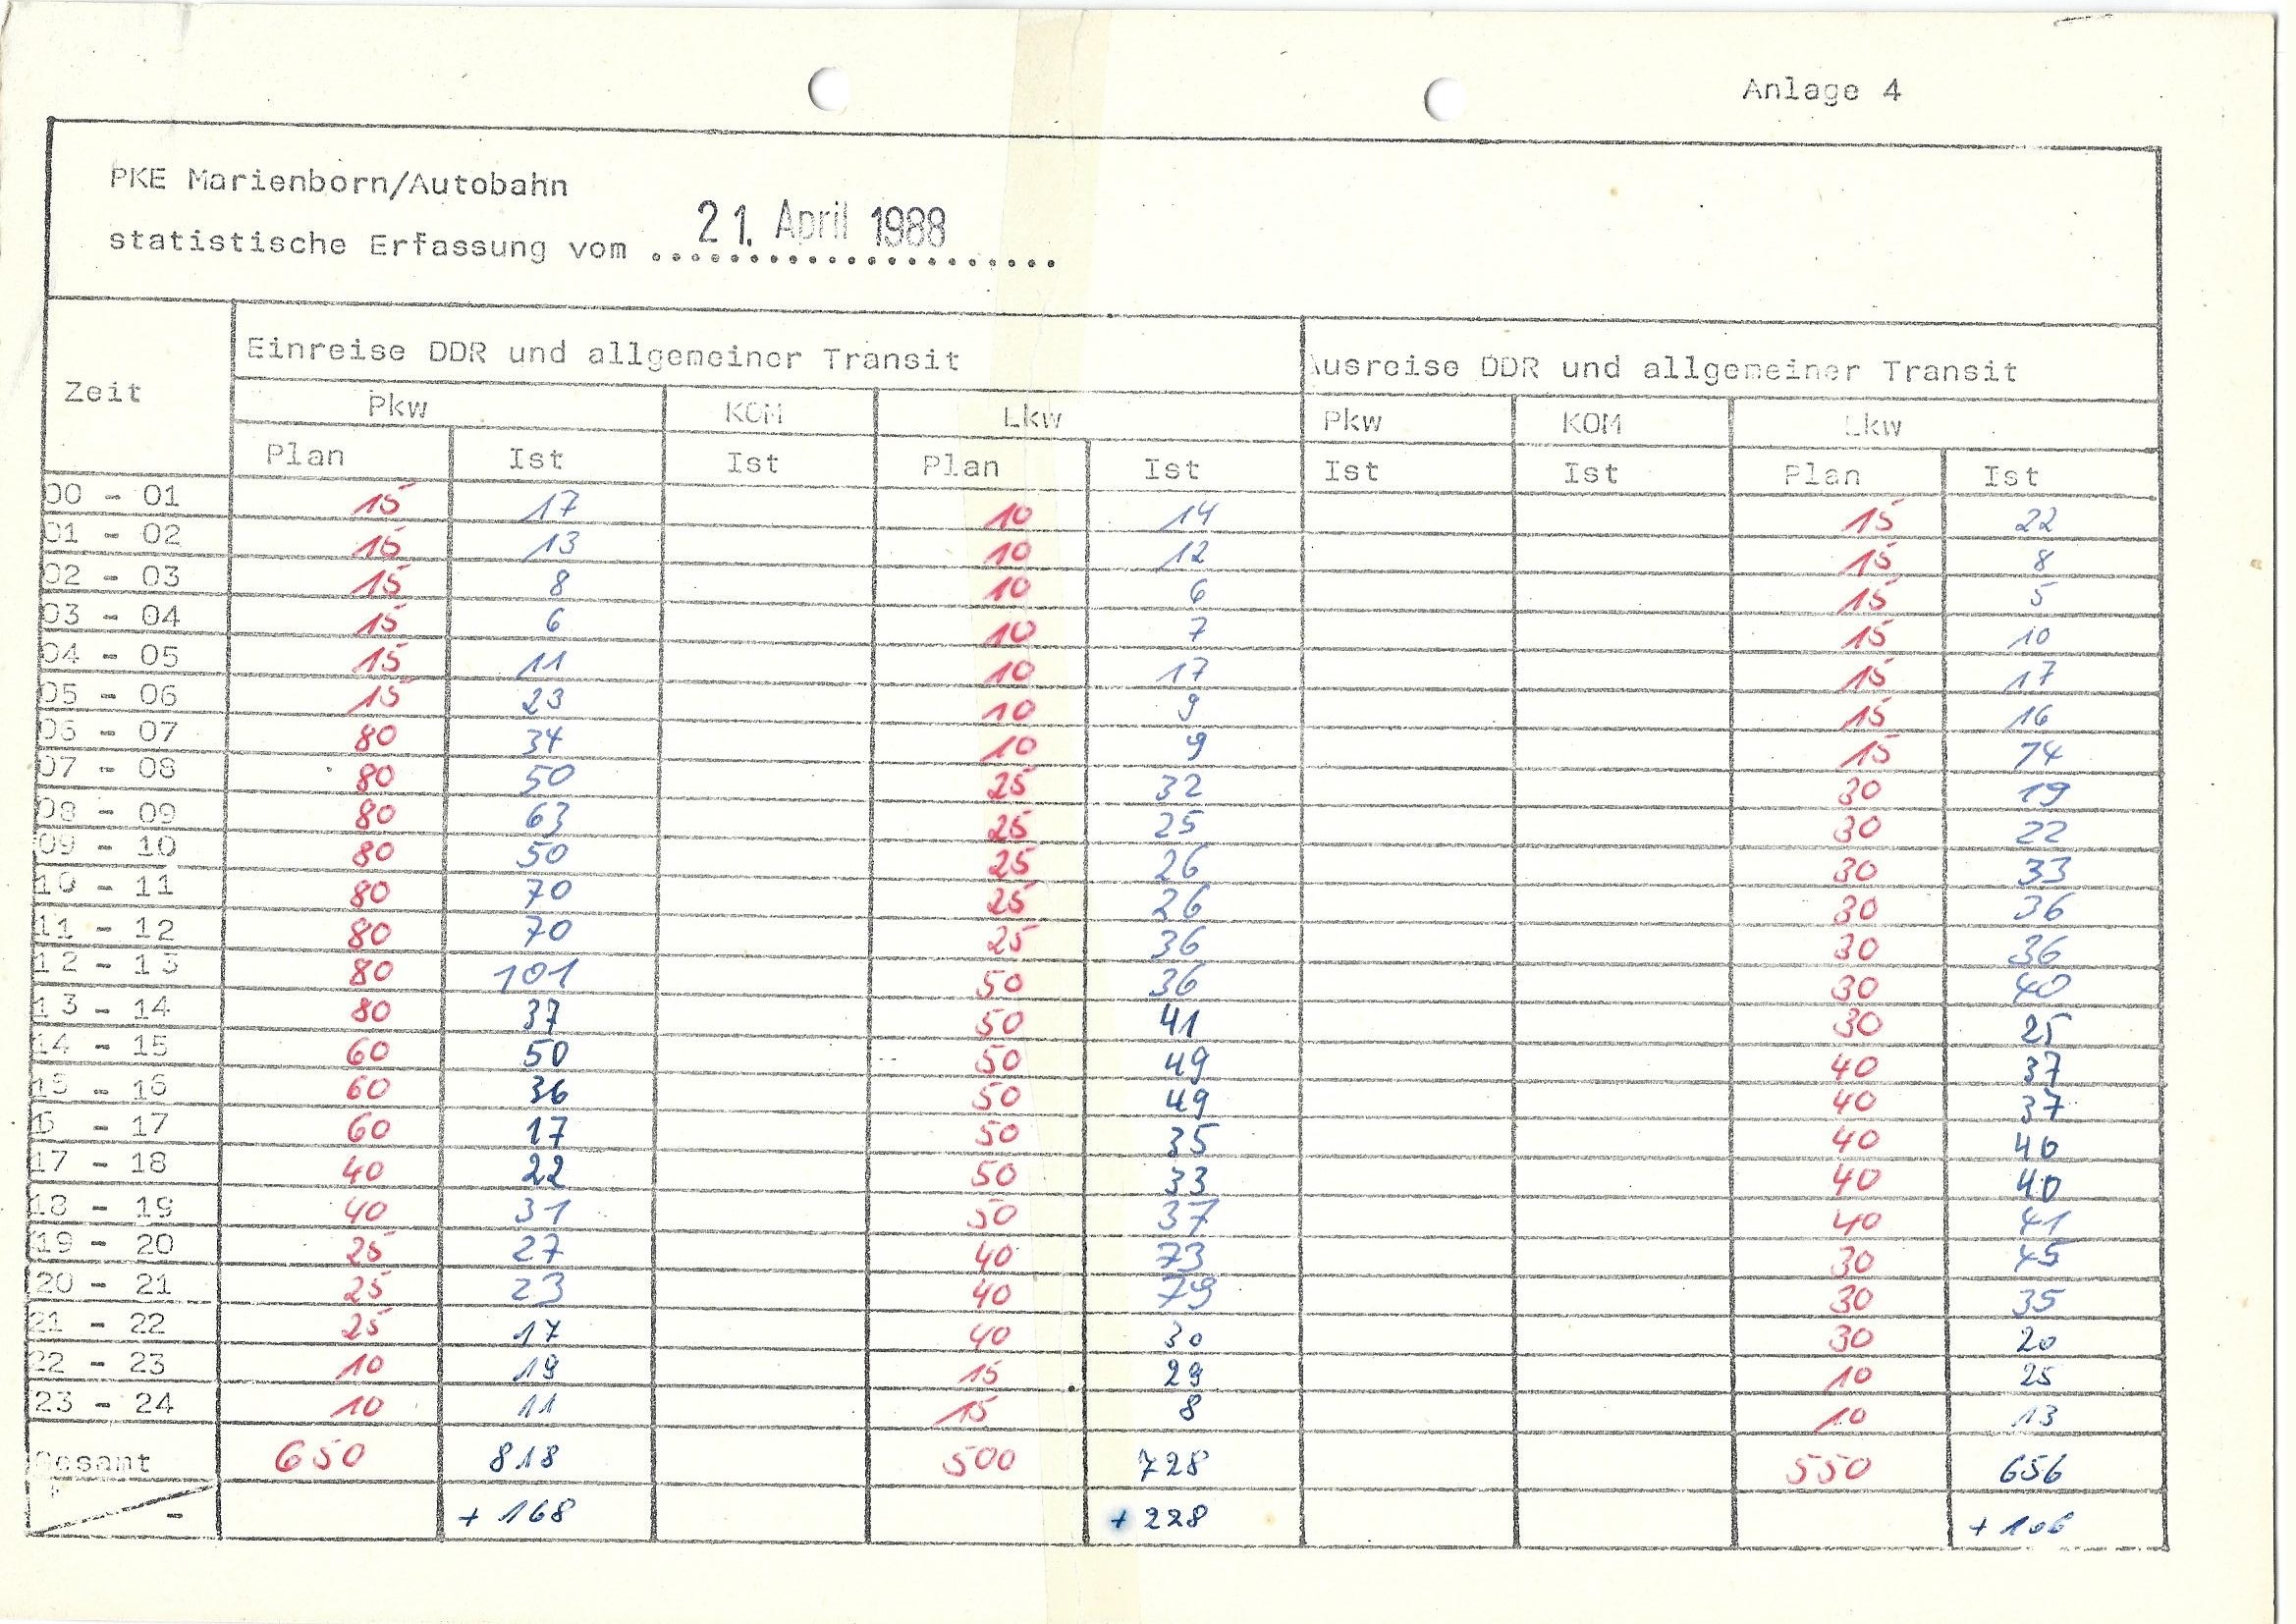 Anlage 4
PKE Marienborn/Autobahn
statistische Erfassung vom 21. April 1988
Zeit Einreise DDR und allgemeiner Transit Ausreise DDR und allgemeiner Transit
Pkw KOM Lkw Pkw KOM Lkw
Plan Ist Ist Plan Ist Ist Ist Plan Ist
00 - 01 15 17 10 14 15 22
01 - 02 15 13 10 12 15 8
02 - 03 15 8 10 6 15 5
03 - 04 15 6 10 7 15 10
04 - 05 15 11 10 17 15 17
05 - 06 15 23 10 9 15 16
06 - 07 80 34 10 9 15 14
07 - 08 80 50 25 32 30 19
08 - 09 80 63 25 25 30 22
09 - 10 80 50 25 26 30 33
10 - 11 80 70 25 26 30 36
11 - 12 80 70 25 36 30 36
12 - 13 80 101 50 36 30 40
13 - 14 80 37 50 41 30 25
14 - 15 60 50 50 49 40 37
15 - 16 60 36 50 49 40 37
6 - 17 60 17 50 35 40 40
17 - 18 40 22 50 33 40 40
18 - 19 40 31 50 37 40 41
19 - 20 25 27 40 73 30 45
20 - 21 25 23 40 79 30 35
21 - 22 25 17 40 30 30 20
22 - 23 10 19 15 29 10 25
23 - 24 10 11 15 8 10 13
Gesamt 650 818 500 728 550 656
- + 168 + 228 + 106